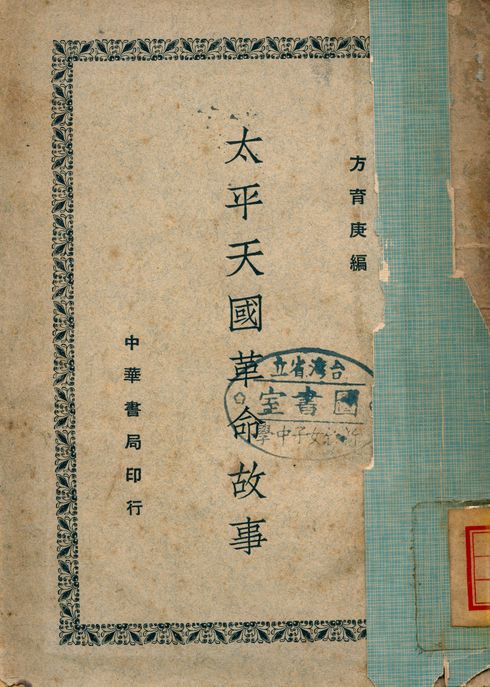 方育庚編
太平天國革命故事
中華書局印行
台湾省立
圖書室
女子中學